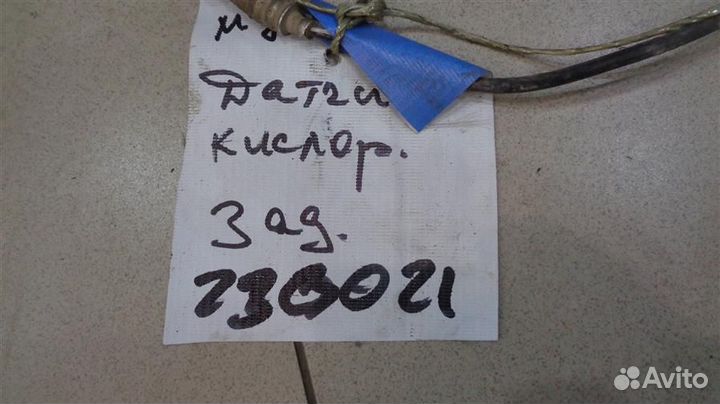 Датчи
кислор.
Зад.
230021
Avito